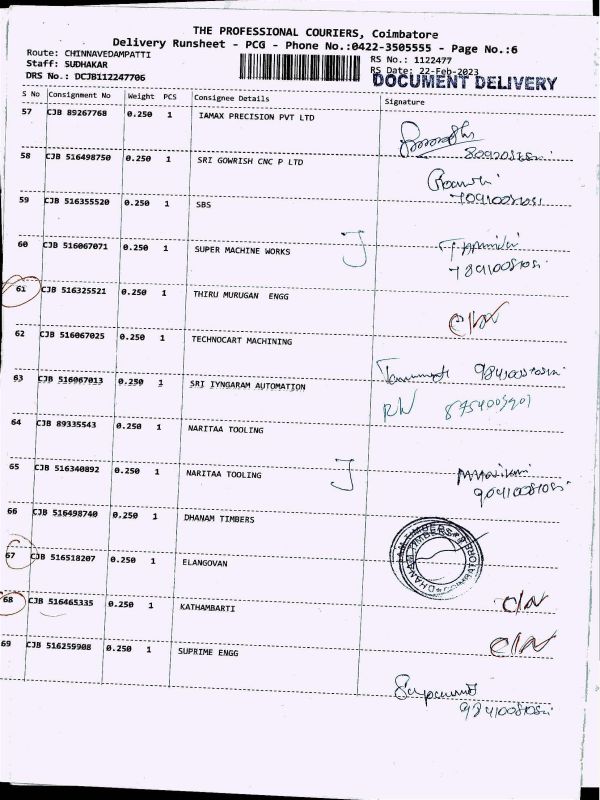 THE PROFESSIONAL COURIERS, Coimbatore
Delivery Runsheet - PCG - Phone No.:0422-3505555 - Page No.:6
Route: CHINNAVEDAMPATTI
Staff: SUDHAKAR
DRS No.: DCJB112247706
RS No.: 1122477
RS Date: 22-Feb-2023
DOCUMENT DELIVERY
S No Consignment No Weight PCS Consignee Details Signature
57 CJB 89267768 0.250 1 IAMAX PRECISION PVT LTD
58 CJB 516498750 0.250 1 SRI GOWRISH CNC P LTD
59 CJB 516355520 0.250 1 SBS
60 CJB 516067071 0.250 1 SUPER MACHINE WORKS
61 CJB 516325521 0.250 1 THIRU MURUGAN ENGG
62 CJB 516067025 0.250 1 TECHNOCART MACHINING
63 CJB 516067013 0.250 1 SRI IYNGARAM AUTOMATION
64 CJB 89335543 0.250 1 NARITAA TOOLING
65 CJB 516340892 0.250 1 NARITAA TOOLING
66 CJB 516498740 0.250 1 DHANAM TIMBERS
DHANAM TIMBERS
67 CJB 516518207 0.250 1 ELANGOVAN
68 CJB 516465335 0.250 1 KATHAMBARTI
69 CJB 516259908 0.250 1 SUPRIME ENGG